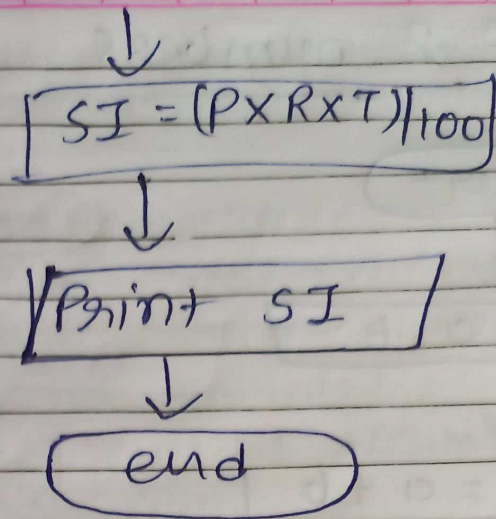 SI = (PXRXT)/100
Print SI
end